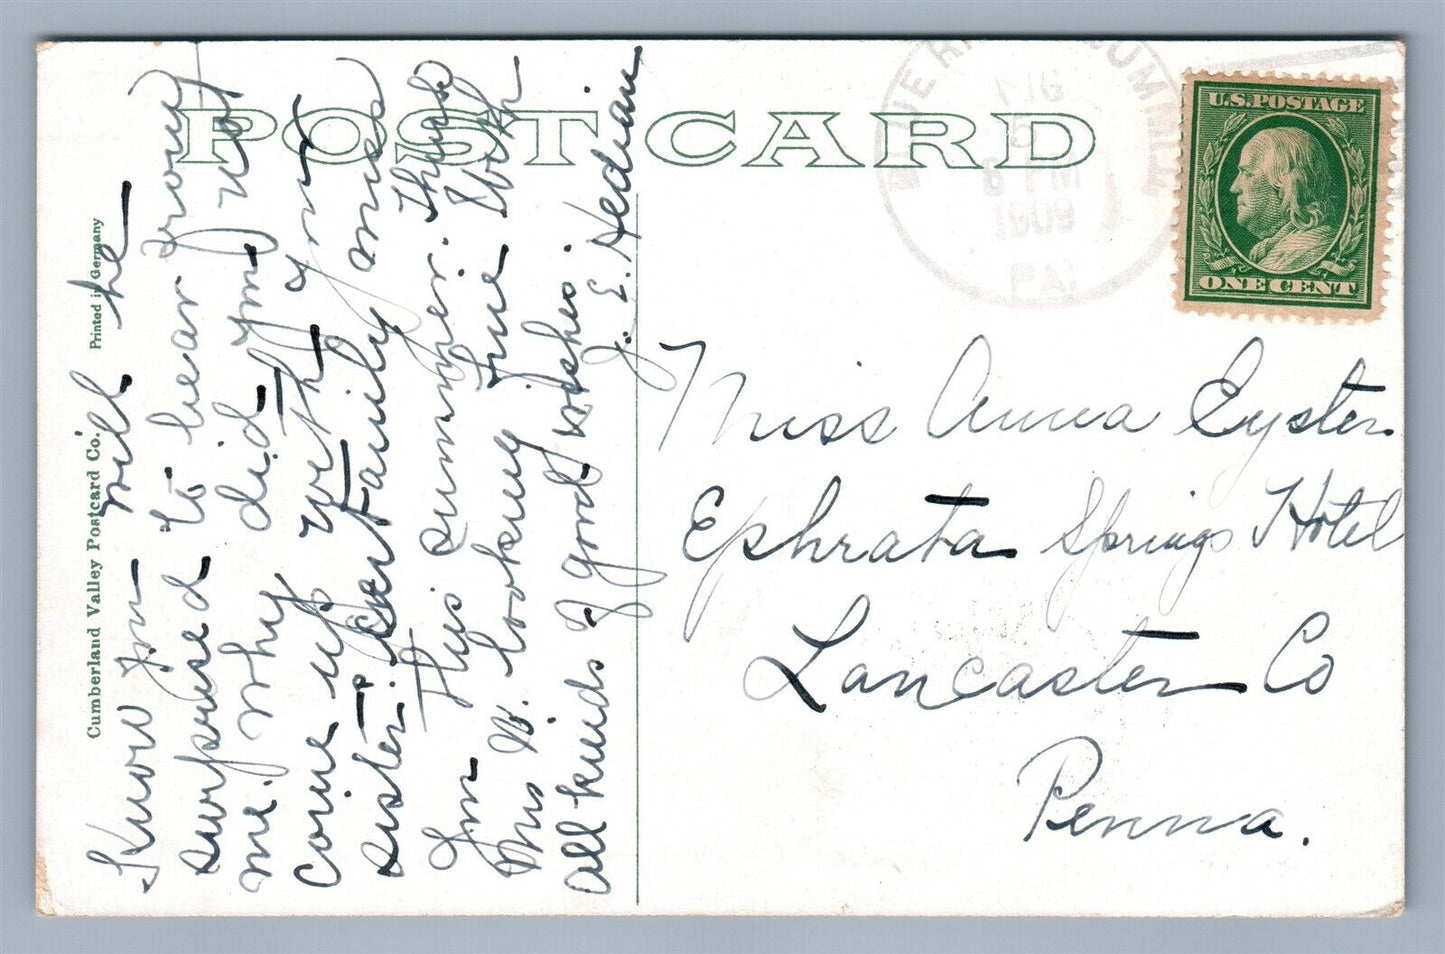 POST CARD
BLUE RI SUMMIT
AUG
5
6 PM
1909
PA.
U.S. POSTAGE
ONE CENT
Cumberland Valley Postcard Co. Printed in Germany
Know you will be
surprised to hear from
me. Why did you not
come up with your
sister. Certainly miss
you this summer. Think
Mrs W. looking fine. With
all kinds of good wishes.
J. E. Hedian
Miss Anna Eyster
Ephrata Springs Hotel
Lancaster Co
Penna.